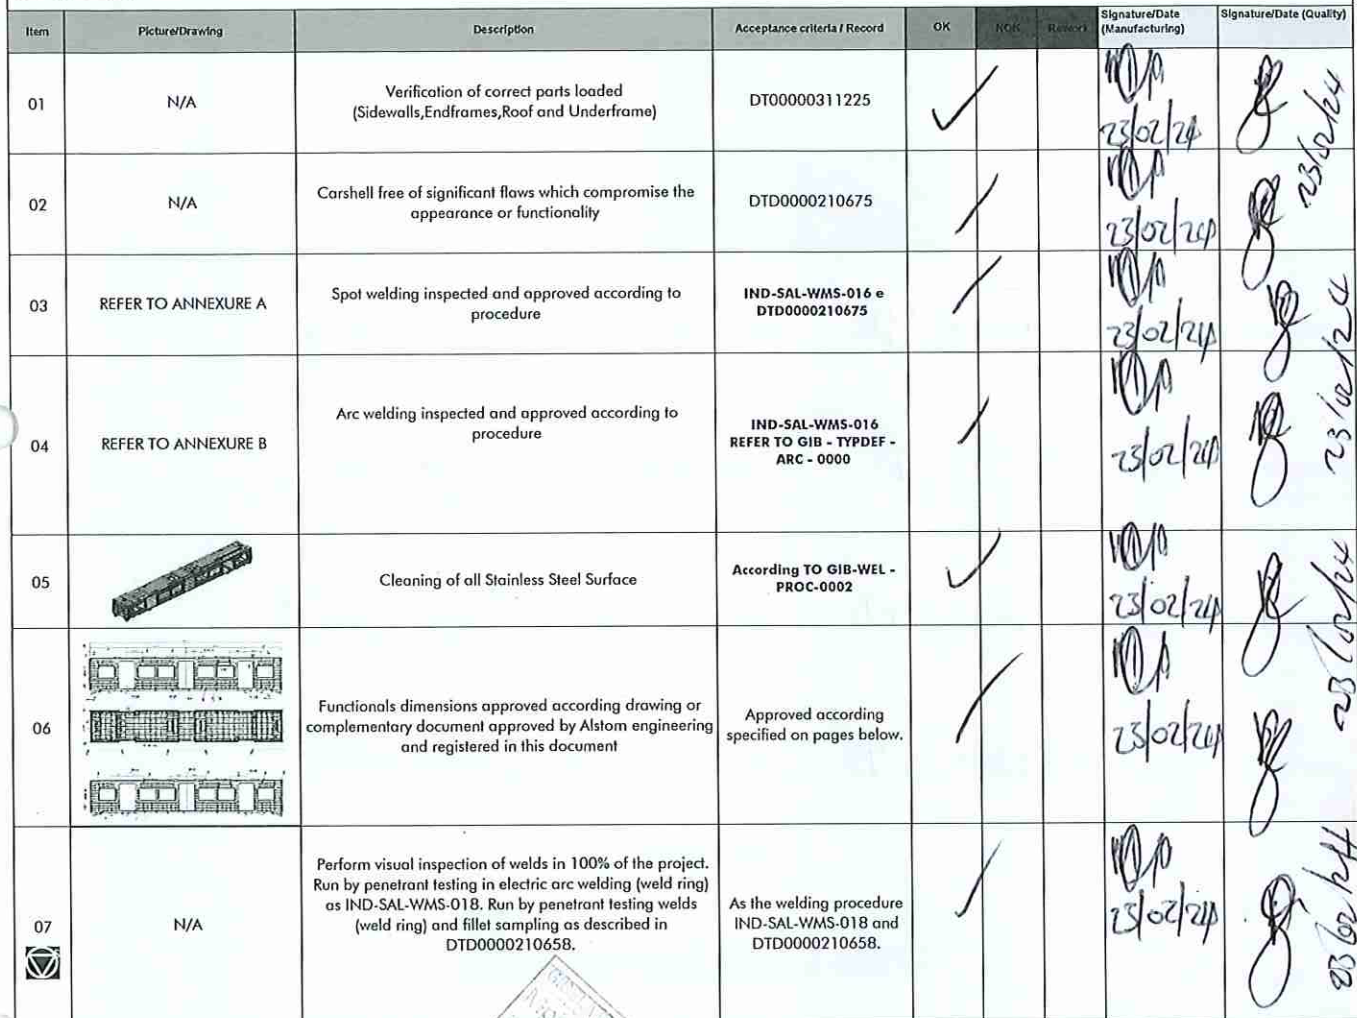 Item Picture/Drawing Description Acceptance criteria / Record OK NOK Rework Signature/Date (Manufacturing) Signature/Date (Quality)
01 N/A
Verification of correct parts loaded
(Sidewalls,Endframes,Roof and Underframe)
DT00000311225
23/02/24
23/02/24
02 N/A
Carshell free of significant flaws which compromise the
appearance or functionality
DTD0000210675
23/02/24
03 REFER TO ANNEXURE A
Spot welding inspected and approved according to
procedure
IND-SAL-WMS-016 e
DTD0000210675
23/02/24
23/02/24
04 REFER TO ANNEXURE B
Arc welding inspected and approved according to
procedure
IND-SAL-WMS-016
REFER TO GIB - TYPDEF -
ARC - 0000
23/02/24
05
Cleaning of all Stainless Steel Surface
According TO GIB-WEL -
PROC-0002
23/02/24
23/02/24
06
Functionals dimensions approved according drawing or
complementary document approved by Alstom engineering
and registered in this document
Approved according
specified on pages below.
23/02/24
07 N/A
Perform visual inspection of welds in 100% of the project.
Run by penetrant testing in electric arc welding (weld ring)
as IND-SAL-WMS-018. Run by penetrant testing welds
(weld ring) and fillet sampling as described in
DTD0000210658.
As the welding procedure
IND-SAL-WMS-018 and
DTD0000210658.
23/02/24
23/02/24